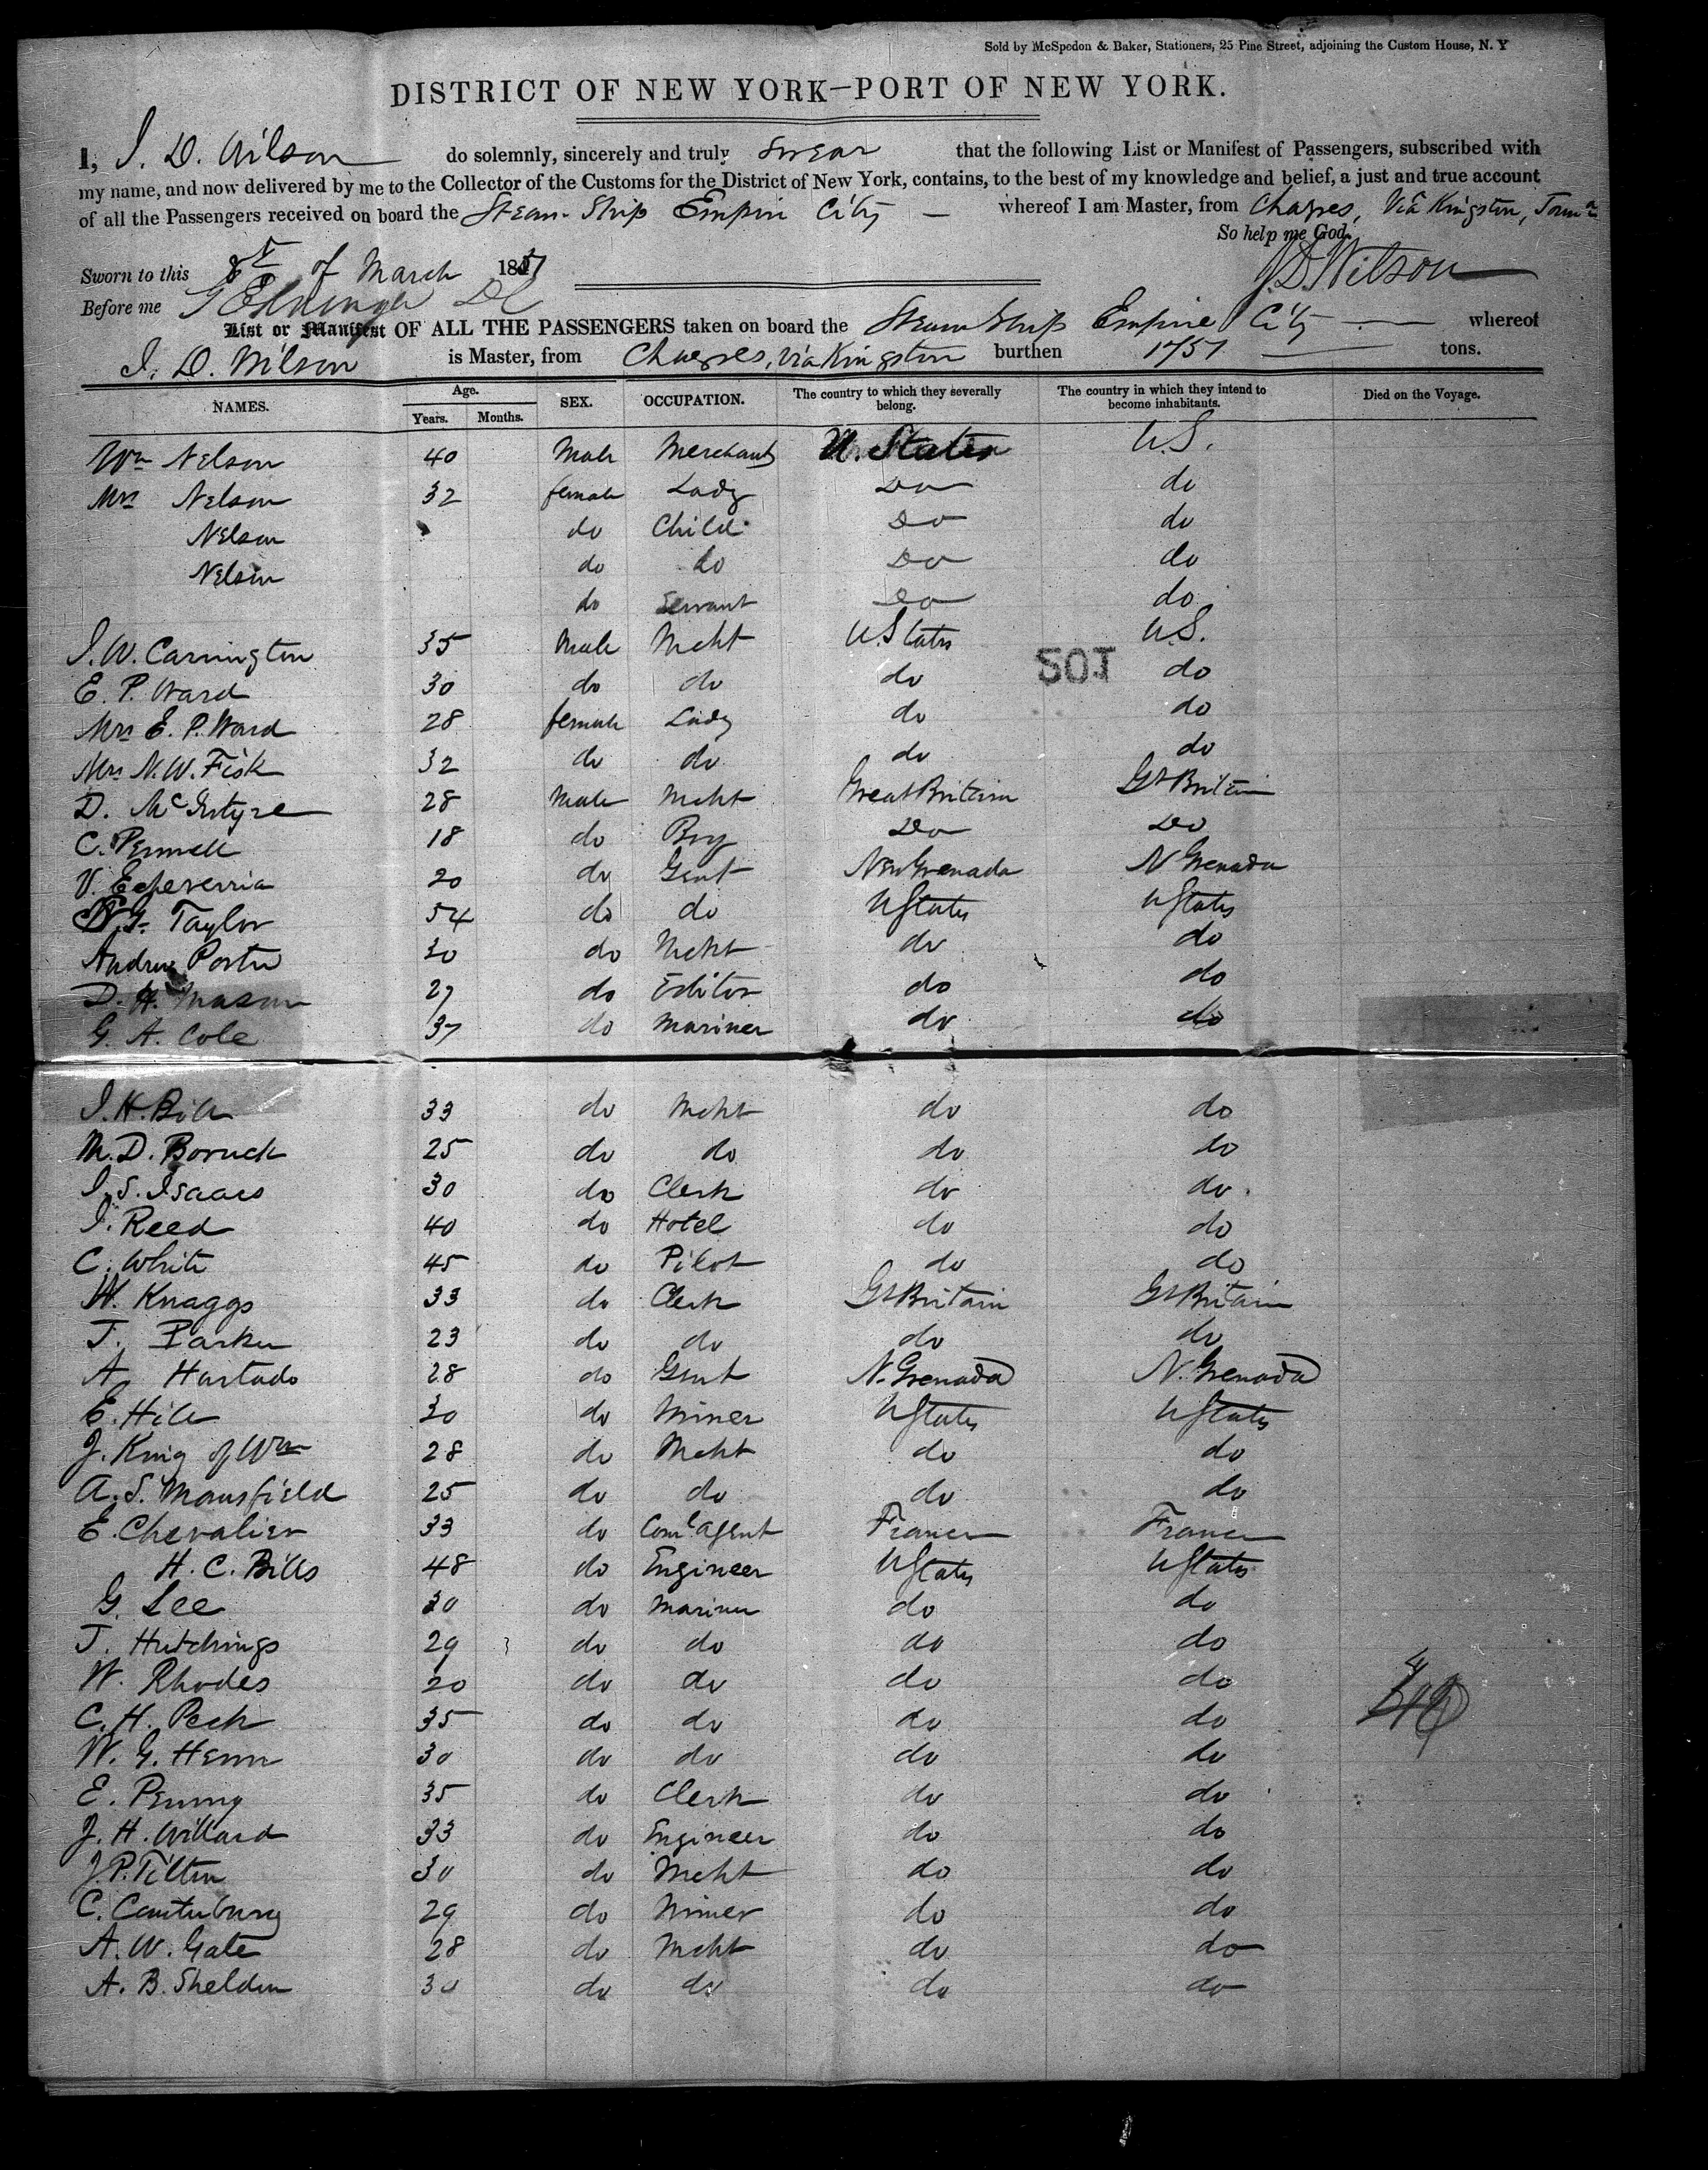 Sold by McSpedon & Baker, Stationers, 25 Pine Street, adjoining the Custom House, N. Y
DISTRICT OF NEW YORK—PORT OF NEW YORK.
I, J. D. Wilson do solemnly, sincerely and truly swear that the following List or Manifest of Passengers, subscribed with
my name, and now delivered by me to the Collector of the Customs for the District of New York, contains, to the best of my knowledge and belief, a just and true account
of all the Passengers received on board the Steam-Ship Empire City — whereof I am Master, from Chagres, Via Kingston,
So help me God.
Sworn to this 8th of March 1851 J. D. Wilson
Before me
List or Manifest OF ALL THE PASSENGERS taken on board the Steam Ship Empire City whereof
J. D. Wilson is Master, from Chagres, via Kingston burthen 1751 tons.
NAMES. Age. Years. Months. SEX. OCCUPATION. The country to which they severally belong. The country in which they intend to become inhabitants. Died on the Voyage.
Wm Nelson 40 Male Merchant U. States U.S.
Mrs Nelson 32 female Lady Do do
Nelson do Child Do do
Nelson do do Do do
do Servant Do do
J. W. Carrington 35 Male Mcht U. States U.S.
SOJ
E. P. Ward 30 do do do do
Mrs E. P. Ward 28 female Lady do do
Mrs N. W. Fisk 32 do do do do
D. McIntyre 28 Male Mcht Great Britain Gt Britain
C. Pennell 18 do Boy Do Do
V. Echeverria 20 do Gent New Grenada N Grenada
Taylor 54 do do U States U States
Andrew Porter 30 do Mcht do do
D. H. Mason 27 do Editor do do
G. A. Cole 37 do Mariner do do
J. H. Bill 33 do Mcht do do
M. D. Boruck 25 do do do do
J. S. Isaacs 30 do Clerk do do
J. Reed 40 do Hotel do do
C. White 45 do Pilot do do
W. Knaggs 33 do Clerk Gt Britain Gt Britain
J. Parker 23 do do do do
A. Hurtado 28 do Gent N. Grenada N. Grenada
E. Hill 30 do Miner U States U States
J. King of Wm 28 do Mcht do do
A. S. Mansfield 25 do do do do
E. Chevalier 33 do Coml Agent France France
H. C. Bills 48 do Engineer U States U States
G. Lee 30 do Mariner do do
J. Hutchings 29 do do do do
W. Rhodes 20 do do do do
C. H. Peck 35 do do do do
W. G. Henn 30 do do do do
E. Penny 35 do Clerk do do
J. H. Willard 33 do Engineer do do
J. P. Tilton 30 do Mcht do do
C. Canterbury 29 do Miner do do
A. W. Gate 28 do Mcht do do
A. B. Sheldon 30 do do do do